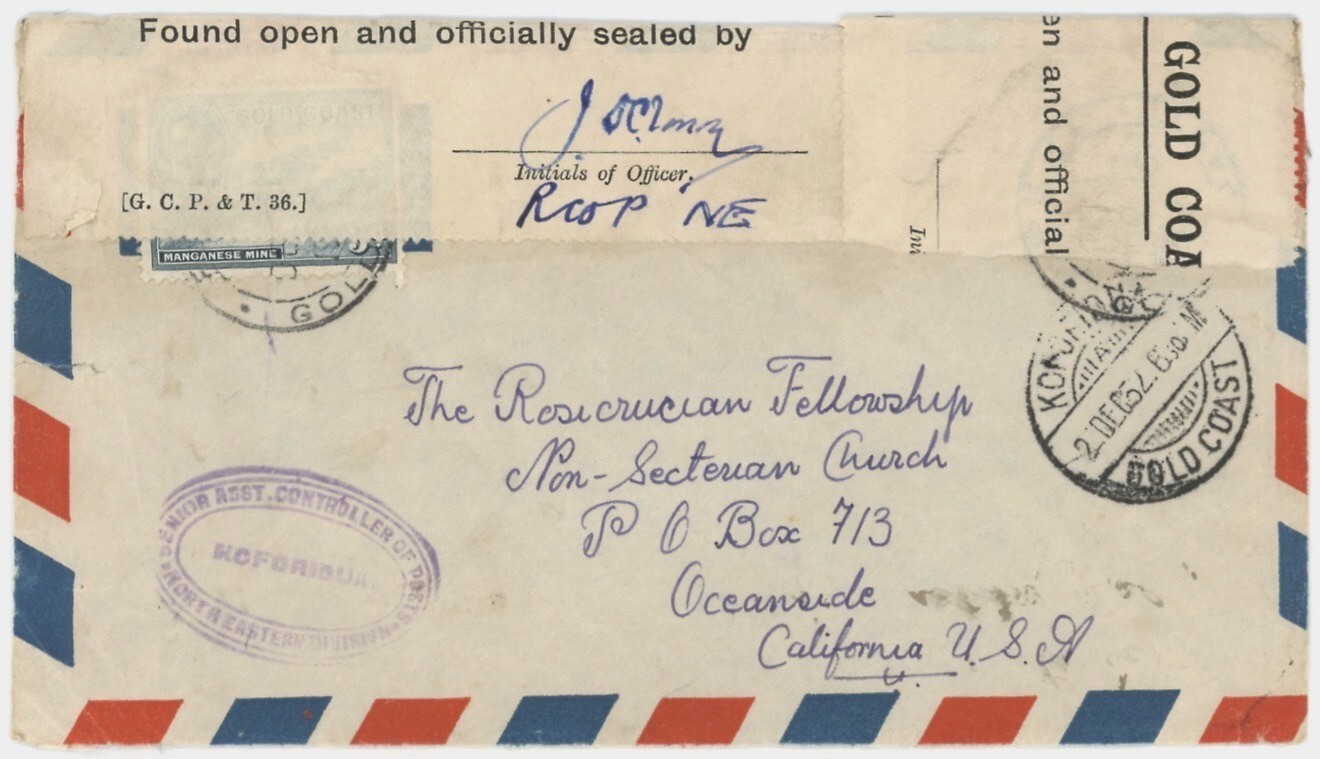 Found open and officially sealed by
Initials of Officer.
[G. C. P. & T. 36.]
RCOP NE
en and official
GOLD COA
GOLD COAST
MANGANESE MINE
GOL
KOFORIDUA
2 DE 52. 6 30 M
GOLD COAST
The Rosicrucian Fellowship
Non-Secterian Church
P O Box 713
Oceanside
California U.S.A
SENIOR ASST. CONTROLLER OF POSTS
KOFORIDUA
NORTH EASTERN DIVISION